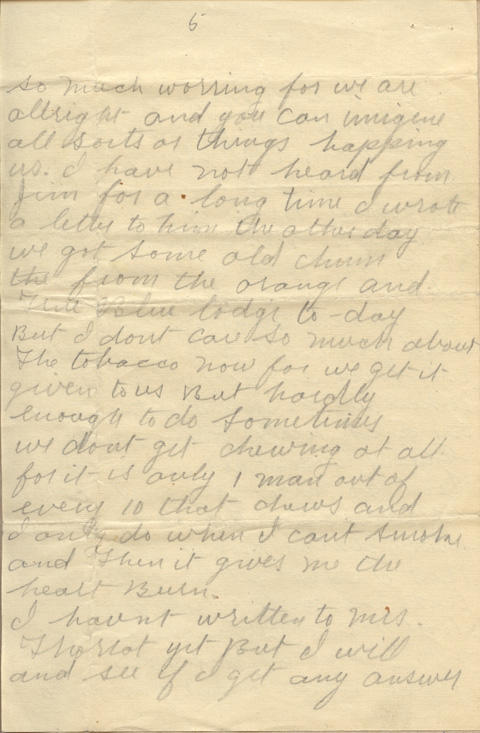 5
so much worring for we are
allright and you can imigine
all sorts of things happing
us. I have not heard from
Jim for a long time I wrote
a letter to him the other day
we got some old chum
the from the orange and
True Blue lodge to-day
But I dont care so much about
The tobacco now for we get it
given to us But hardly
enough to do sometimes
we dont get chewing at all
for it is only 1 man out of
every 10 that chews and
I only do when I cant smoke
and Then it gives me the
heart Burn.
I havnt written to Mrs.
yet But I will
and see if I get any answer